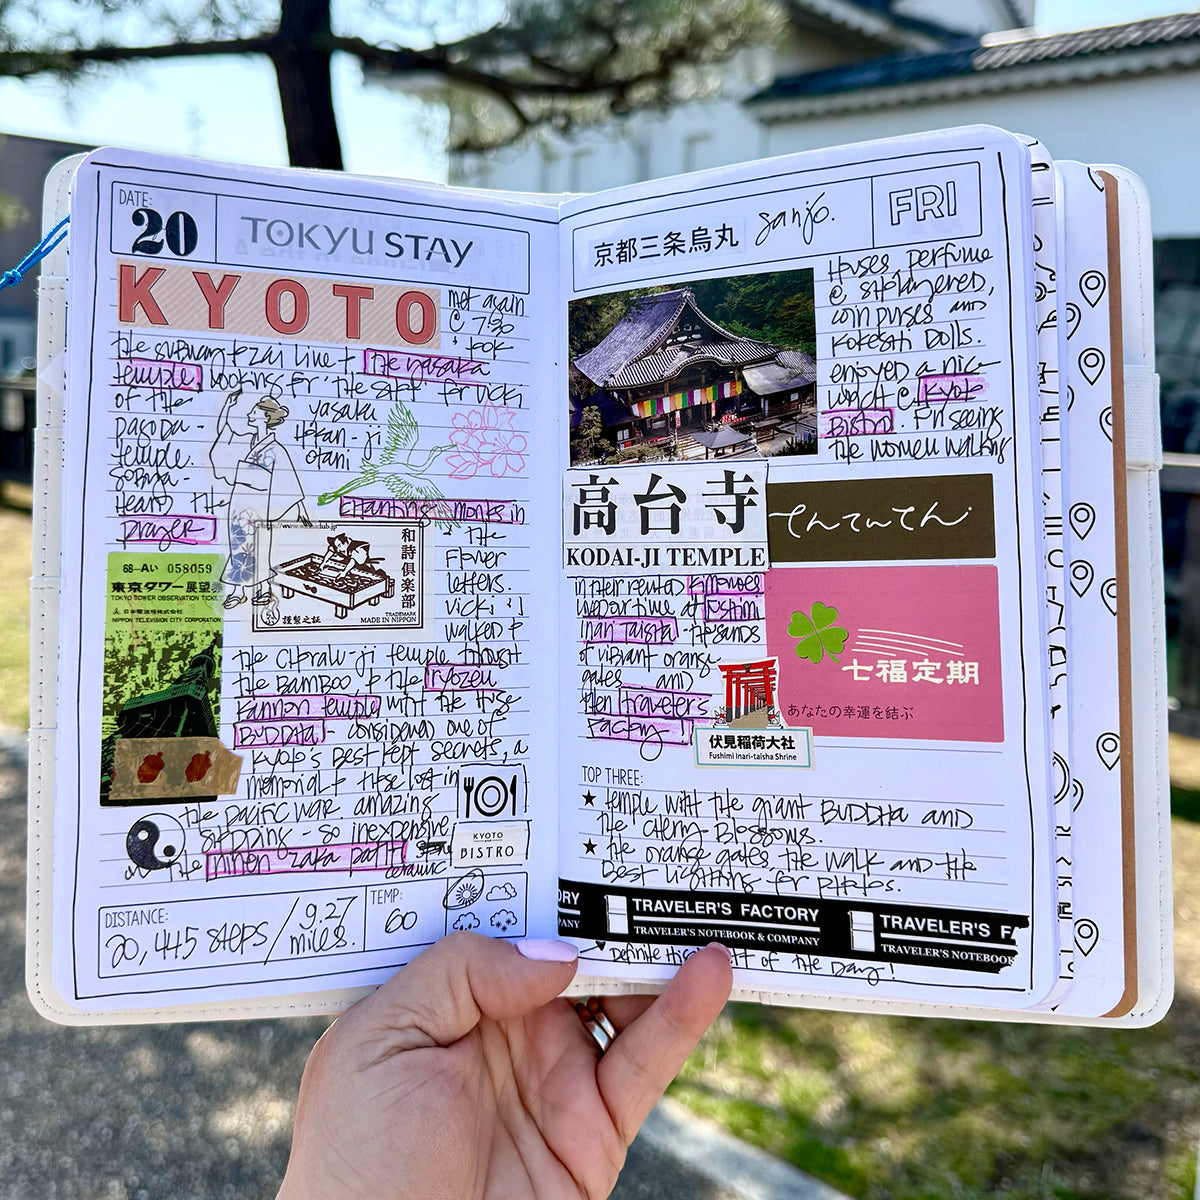 DATE:
20
TOKYU STAY
KYOTO
met again
@ 7:30
& took
the subway tozai line + the yasaka
temple, looking for "the
for vicki
of the
yasaka
pagoda -
hokan-ji
temple.
otani
sobha -
Heard the
chanting monks in
prayer
the
Flower
letters.
vicki & I
walked &
http://www.
club.jp
和詩倶楽部
謹製之証
TRADEMARK
MADE IN NIPPON
68-Aい 058059
東京タワー展望券
TOKYO TOWER OBSERVATION TICKET
日本電波塔株式会社
NIPPON TELEVISION CITY CORPORATION
the
-ji temple through
the Bamboo, & the ryozen
kannon temple with the huge
BUDDHA! - considered one of
kyoto's best kept secrets, a
memorial to those lost in
the pacific war. amazing
shopping - so inexpensive
the ninen zaka path
ceramic
KYOTO
BISTRO
DISTANCE:
20,445 steps / 9.27 miles.
TEMP:
60
京都三条烏丸 sanjo.
FRI
Huses perfume
@
,
coin purses and
kokeshi Dolls.
enjoyed a nice
lunch @ Kyoto
Bistro. Fun seeing
the women walking
高台寺
KODAI-JI TEMPLE
てんてんてん
in their rented kimonos
our time at Fushimi
inari taisha - thousands
of vibrant orange
gates and
then traveler's
Factory!
伏見稲荷大社
Fushimi Inari-taisha Shrine
七福定期
あなたの幸運を結ぶ
TOP THREE:
★ temple with the giant BUDDHA and
the cherry Blossoms.
★ the orange gates the walk and the
Best lighting for photos.
ORY
COMPANY
TRAVELER'S FACTORY
TRAVELER'S NOTEBOOK & COMPANY
TRAVELER'S FA
TRAVELER'S NOTEBOOK
Definite highlight of the Day!